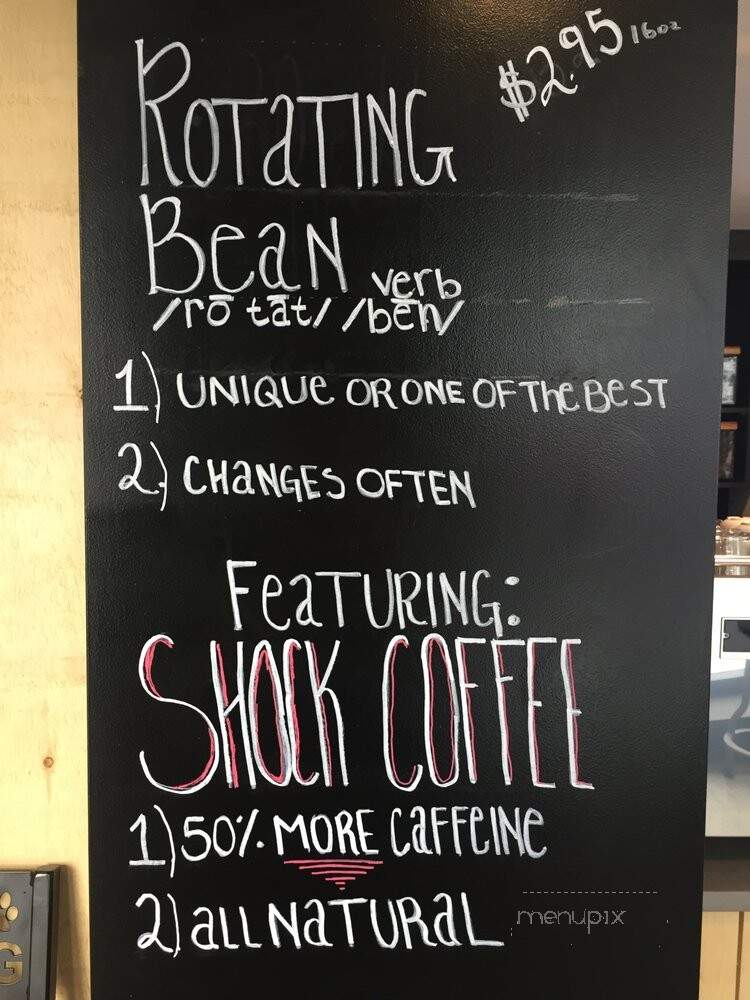 $2.95 16oz
ROTaTING
BeaN verb
/rō tāt/ /bēn/
1) UNIQUe OR ONE OF The BeST
2.) CHaNGES OFTEN
FeaTURING:
SHOCK COFFEE
1) 50% MORE CaFFeINe
2) aLL NaTURaL
menupix
G